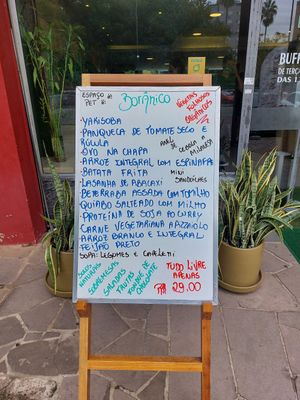 ESPAÇO PET
Botânico
SALADAS FOLHOSAS ORGÂNICAS
- YAKISOBA
- PANQUECA DE TOMATE SECO E RÚCULA
ANEL DE CEBOLA A MILANESA
- OVO NA CHAPA
- ARROZ INTEGRAL COM ESPINAFRE
- BATATA FRITA
MINI SANDUÍCHES
- LASANHA DE ABACAXI
- BETERRABA ASSADA COM TOMILHO
- QUIABO SALTEADO COM MILHO
- PROTEÍNA DE SOJA AO CURRY
- CARNE VEGETARIANA
- ARROZ BRANCO E INTEGRAL
- FEIJÃO PRETO
SOPA: LEGUMES E CAPELETI
SUCOS NATURAIS
SOBREMESAS
SALADAS
FRUTAS
FONDUE DE CHOCOLATE
TUDO LIVRE
APENAS
29,00
BUFF
DE TERÇ
DAS 1